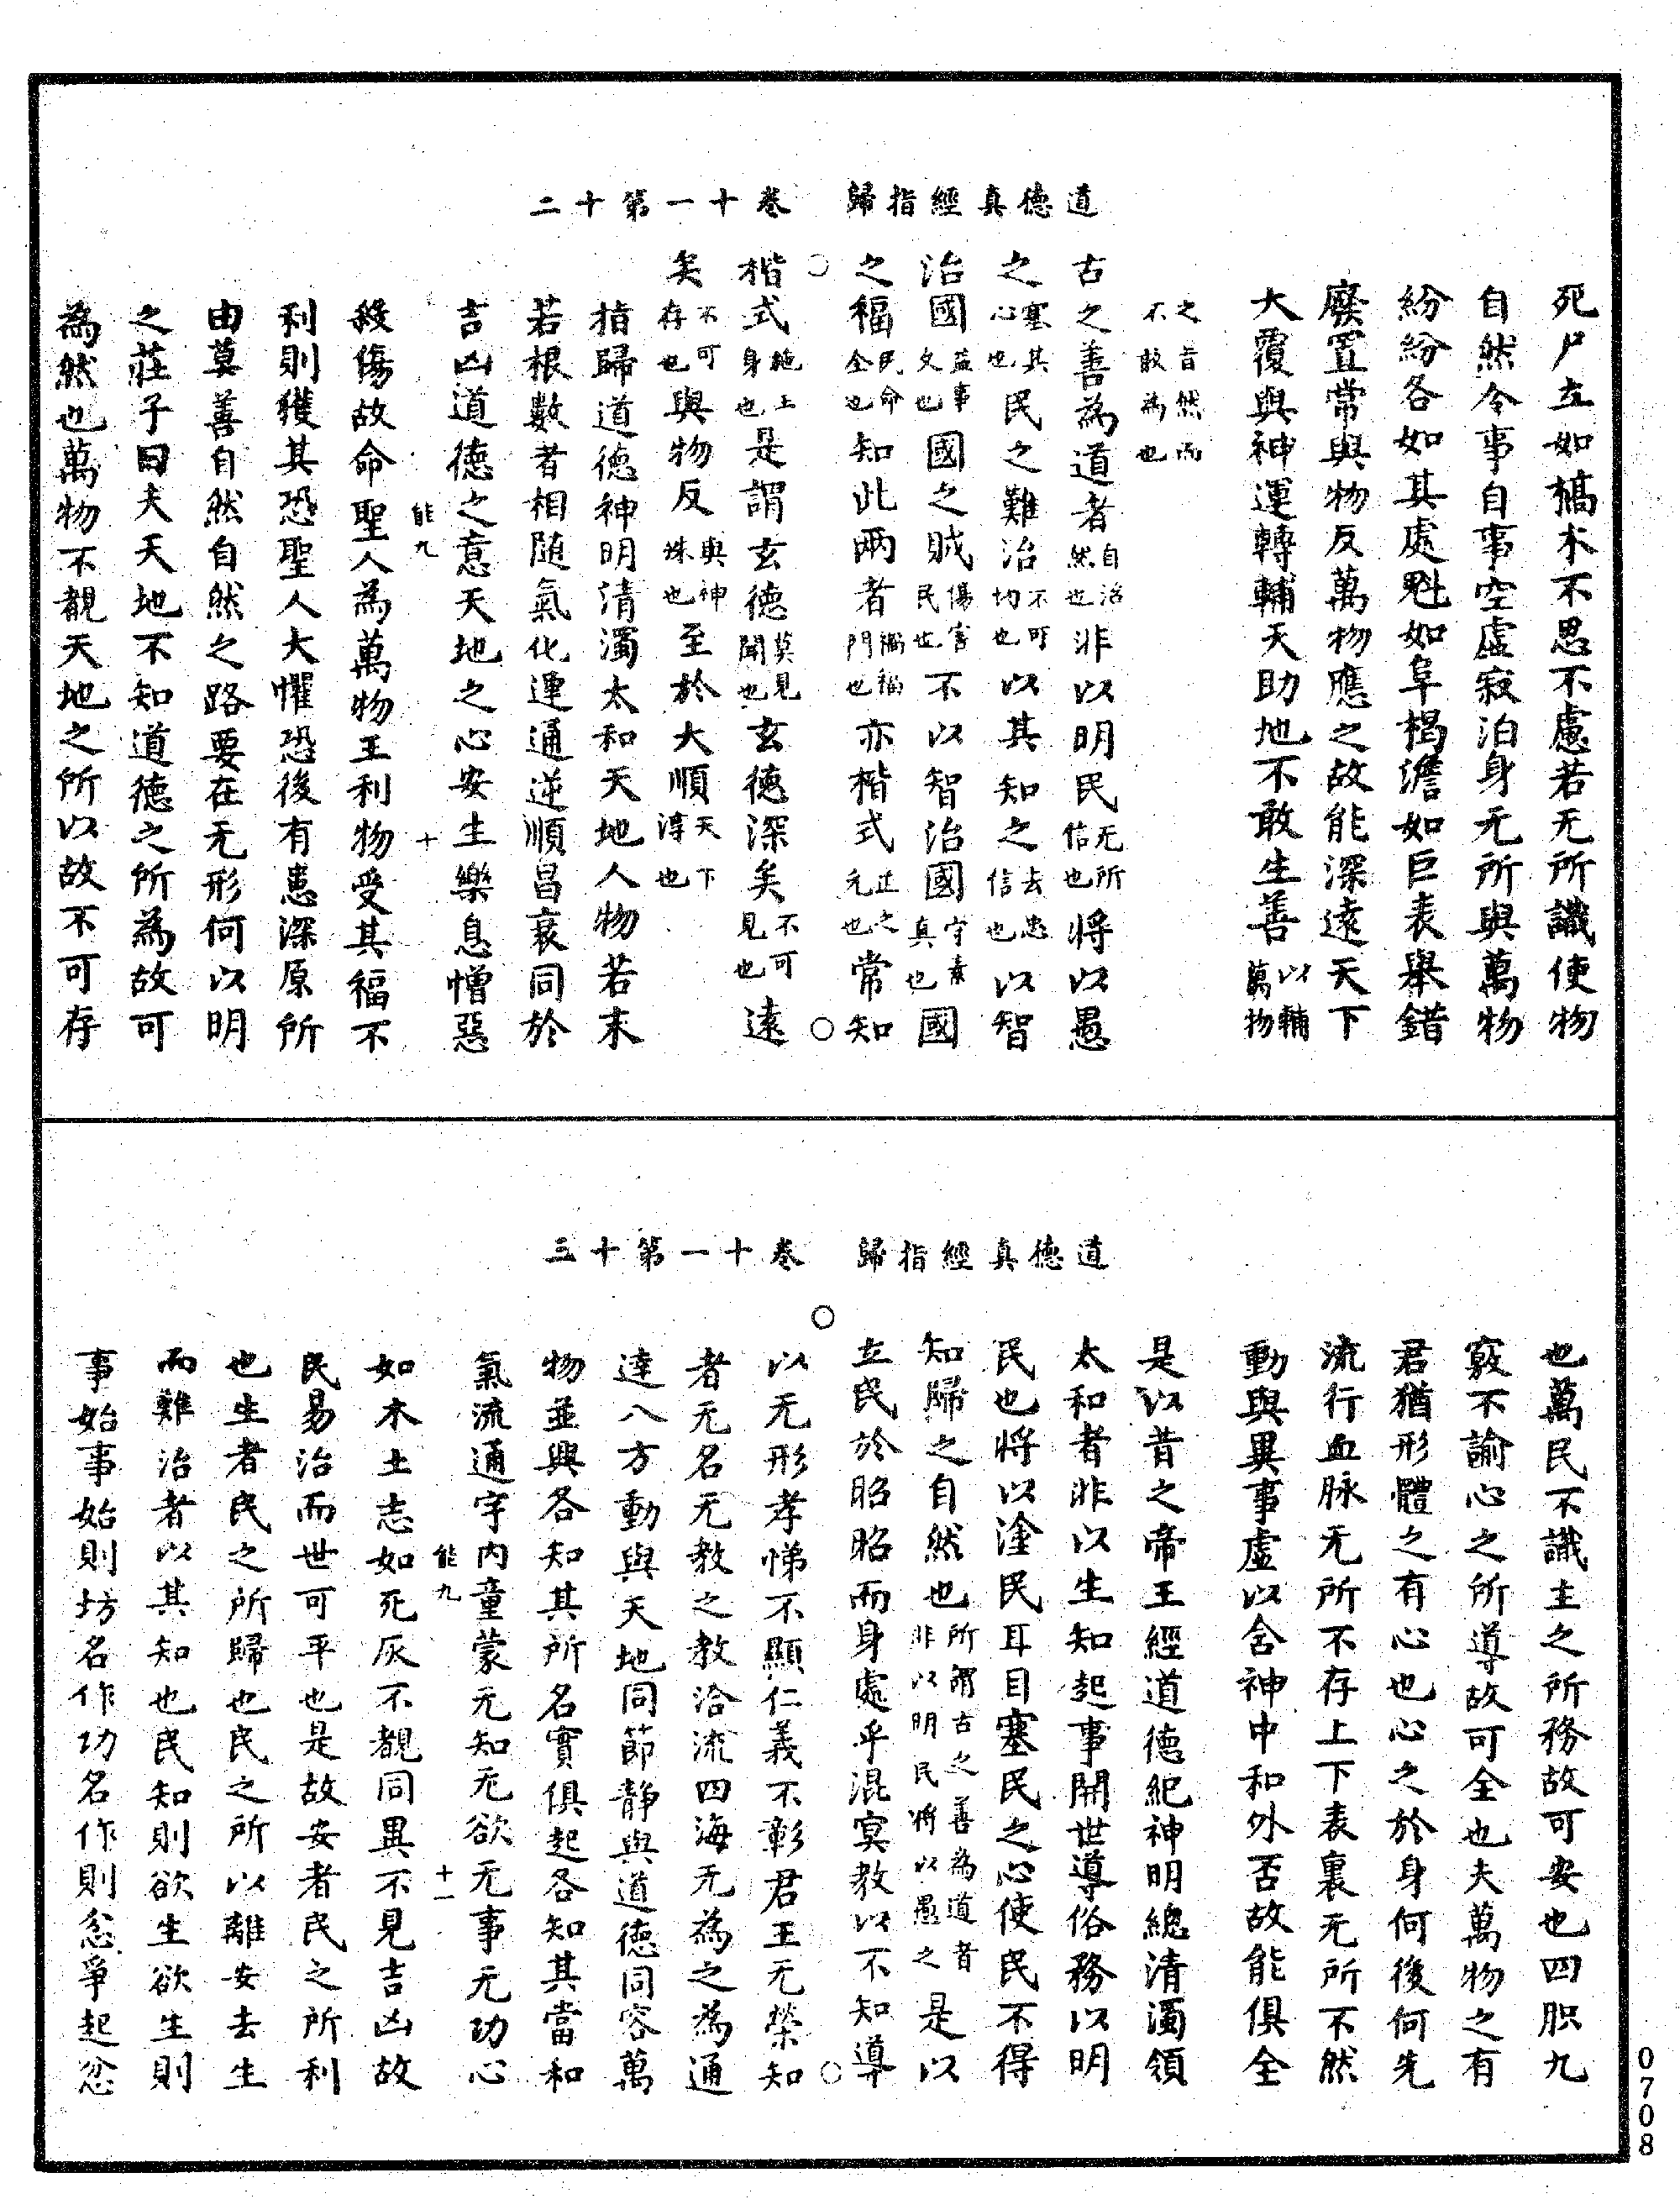 道德真經指歸　卷十一第十二
死尸立如槁木不思不慮若无所識使物
自然令事自事空虛寂泊身无所與萬物
紛紛各如其處魁如阜楬澹如巨表舉錯
廢置常與物反萬物應之故能深遠天下
大覆與神運轉輔天助地不敢生善以輔萬物
之自然而不敢為也
古之善為道者自治然也非以明民无所信也將以愚
之塞其心也民之難治不可切也以其知之去忠信也以智
治國益事文也國之賊傷害民也不以智治國守素真也國
之福民命全也知此兩者禍福門也亦楷式正之元也常知
楷式施上身也是謂玄德莫見聞也玄德深矣不可見也遠
矣不可存也與物反與神殊也至於大順天下淳也
指歸道德神明清濁太和天地人物若末
若根數者相隨氣化連通逆順昌衰同於
吉凶道德之意天地之心安生樂息憎惡
能九　十
殺傷故命聖人為萬物王利物受其福不
利則獲其恐聖人大懼恐後有患深原所
由莫善自然自然之路要在无形何以明
之莊子曰夫天地不知道德之所為故可
為然也萬物不覩天地之所以故不可存
道德真經指歸　卷十一第十三
也萬民不識主之所務故可安也四肢九
竅不諭心之所導故可全也夫萬物之有
君猶形體之有心也心之於身何後何先
流行血脉无所不存上下表裏无所不然
動與異事虛以舍神中和外否故能俱全
是以昔之帝王經道德紀神明總清濁領
太和者非以生知起事開世導俗務以明
民也將以塗民耳目塞民之心使民不得
知歸之自然也所謂古之善為道者非以明民將以愚之是以
立民於昭昭而身處乎混冥教以不知導
以无形孝悌不顯仁義不彰君王无榮知
者无名无教之教洽流四海无為之為通
達八方動與天地同節靜與道德同容萬
物並興各知其所名實俱起各知其當和
氣流通宇內童蒙无知无欲无事无功心
能九　十一
如木土志如死灰不覩同異不見吉凶故
民易治而世可平也是故安者民之所利
也生者民之所歸也民之所以離安去生
而難治者以其知也民知則欲生欲生則
事始事始則坊名作功名作則忿爭起忿
0708